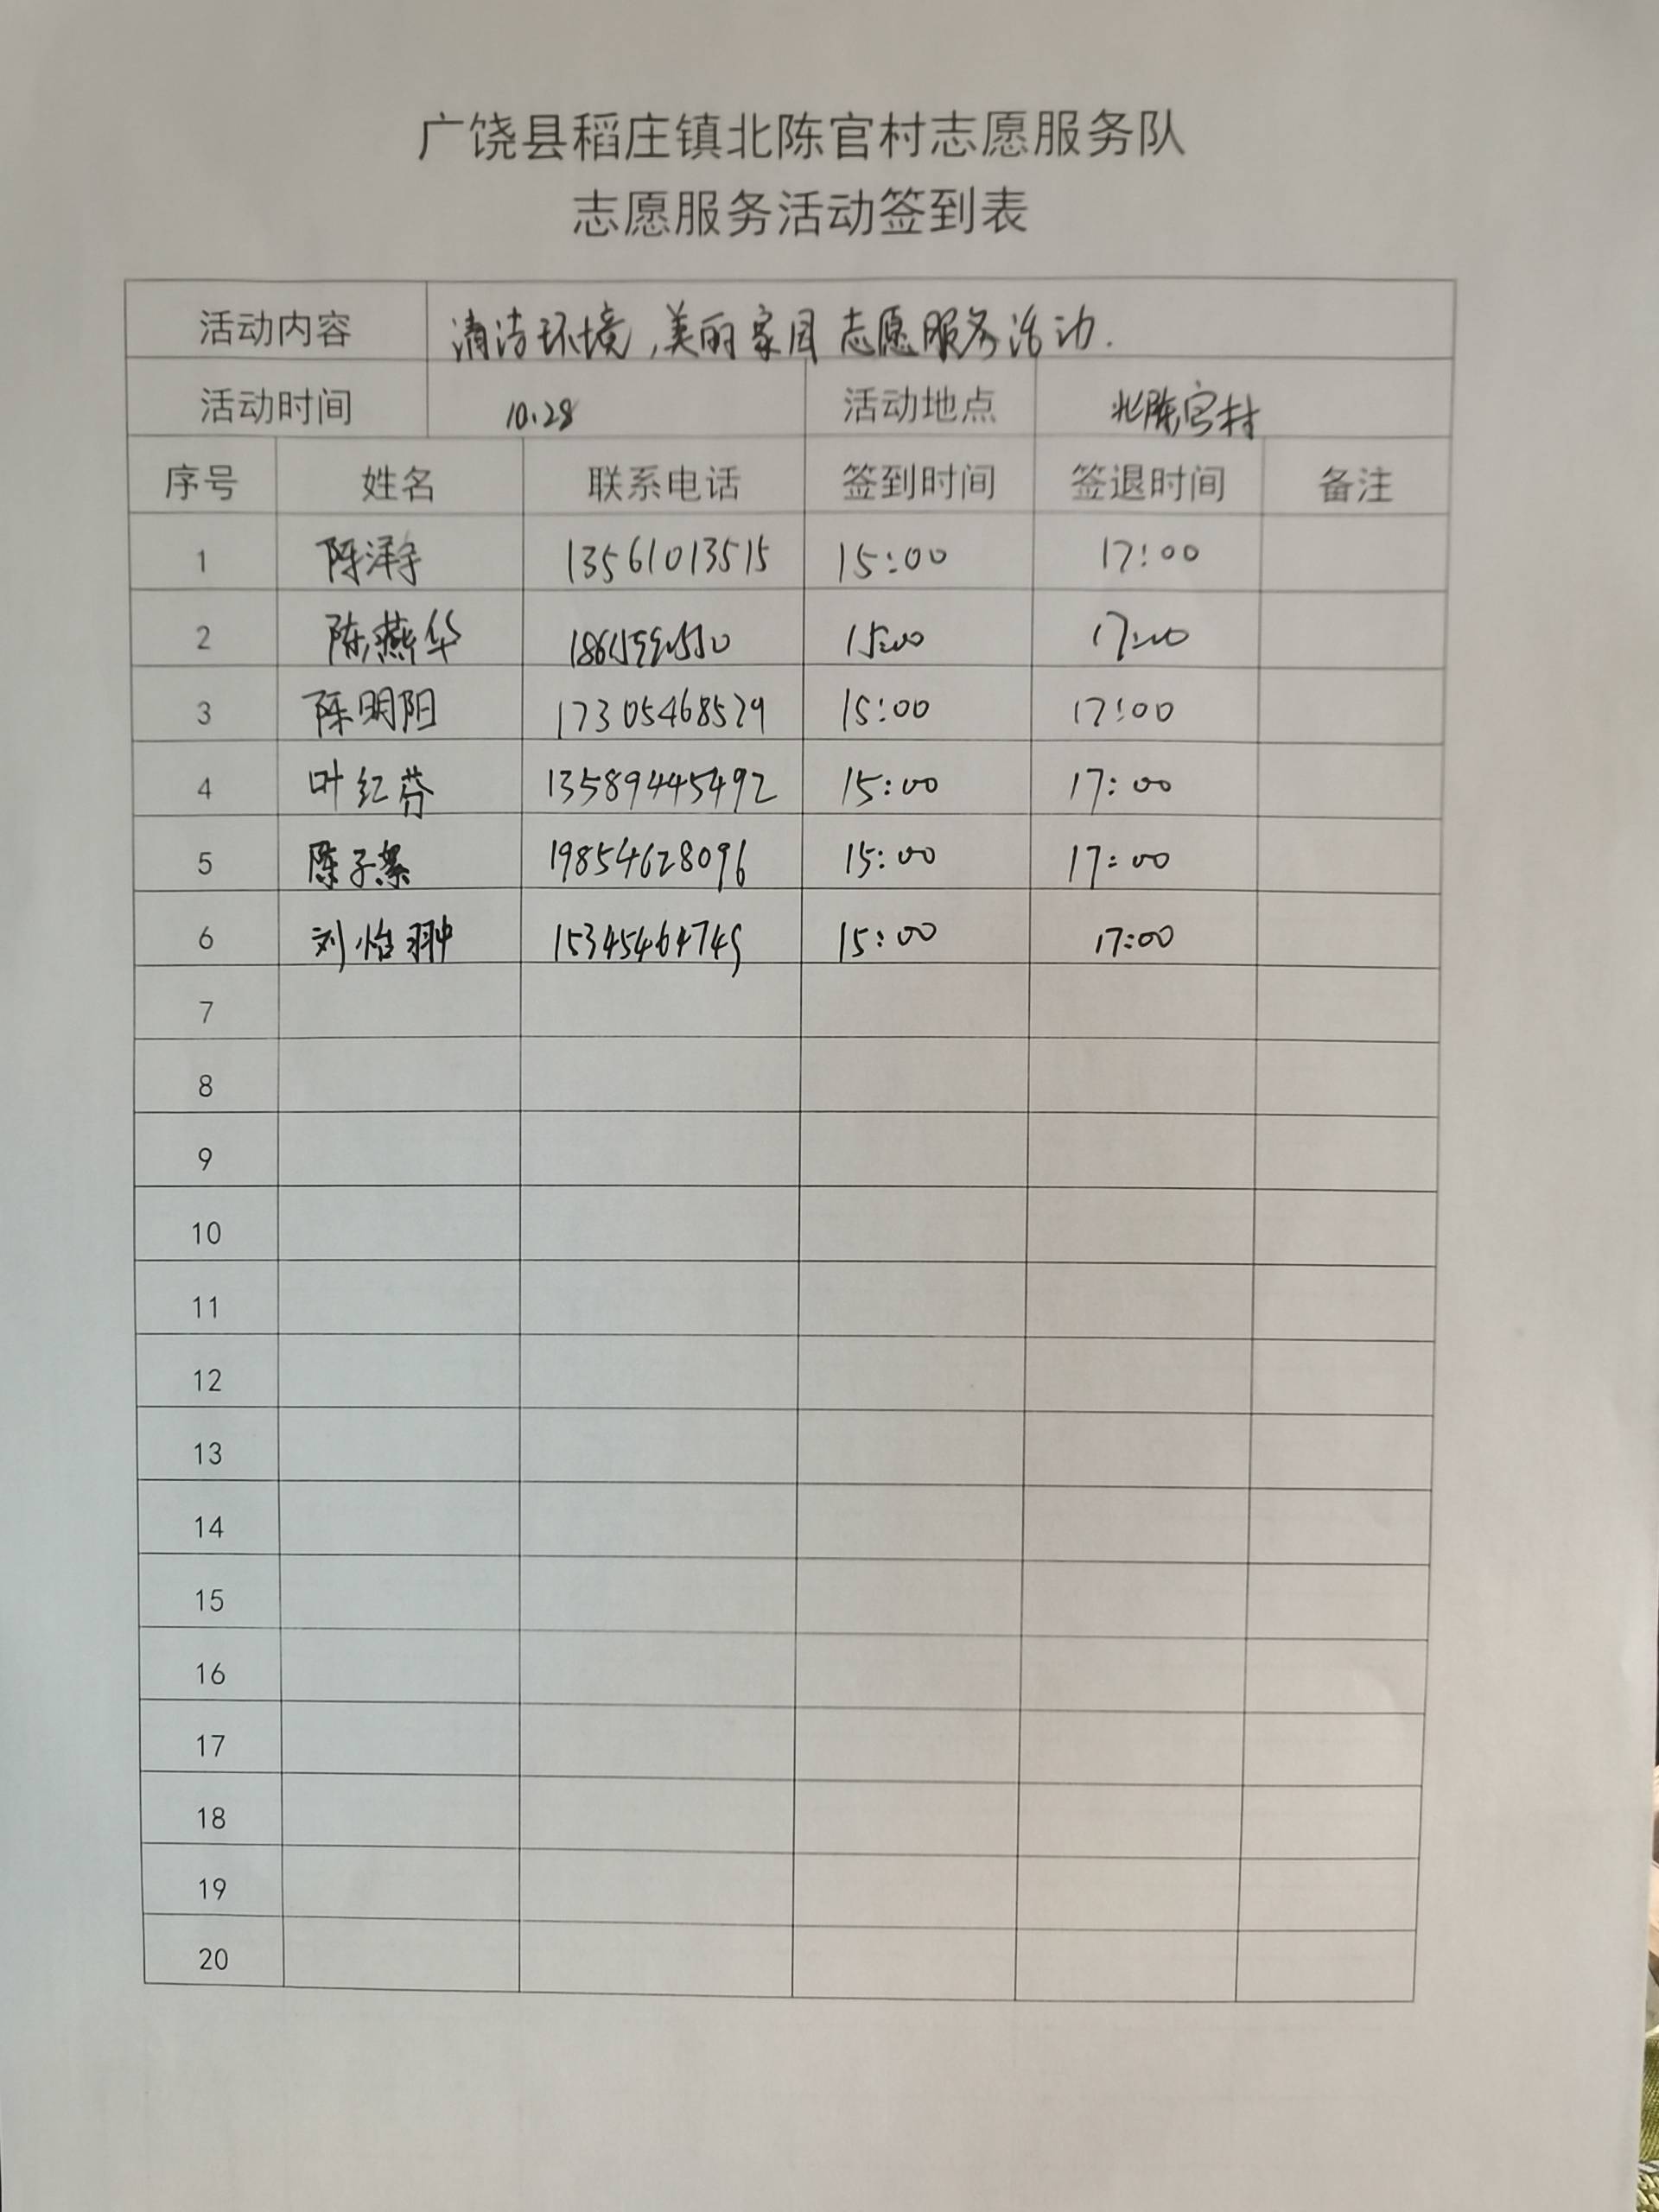 广饶县稻庄镇北陈官村志愿服务队
志愿服务活动签到表
活动内容 清洁环境,美丽家园志愿服务活动.
活动时间 10.28 活动地点 北陈官村
序号 姓名 联系电话 签到时间 签退时间 备注
1 陈泽宇 13561013515 15:00 17:00
2 陈燕华 15:00 17:00
3 陈明阳 17305468529 15:00 17:00
4 叶红芬 13589445492 15:00 17:00
5 陈子 19854628096 15:00 17:00
6 刘怡翀 15345464749 15:00 17:00
7
8
9
10
11
12
13
14
15
16
17
18
19
20